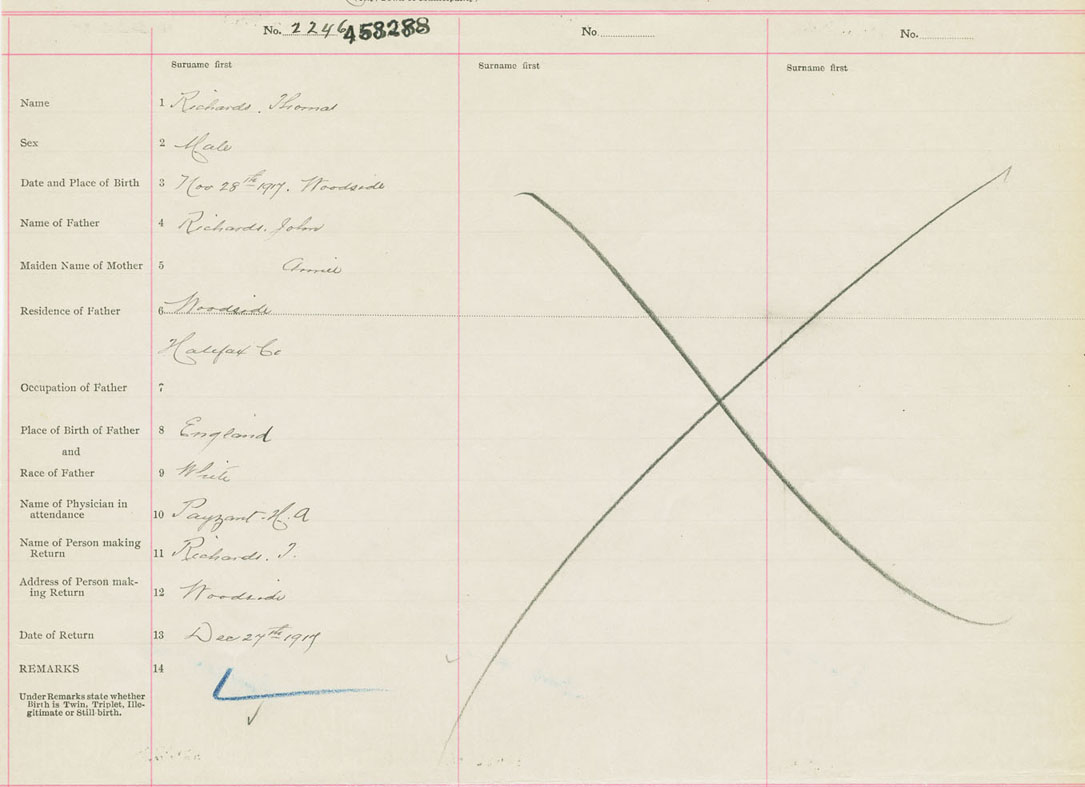 No. 2246 458288
No.
No.
Surname first
Surname first
Surname first
Name 1 Richards. Thomas
Sex 2 Male
Date and Place of Birth 3 Nov 28th 1917. Woodside
Name of Father 4 Richards. John
Maiden Name of Mother 5 Annie
Residence of Father 6 Woodside
Halifax Co
Occupation of Father 7
Place of Birth of Father 8 England
and
Race of Father 9 White
Name of Physician in
attendance 10 Payzant. H. A
Name of Person making
Return 11 Richards. J.
Address of Person mak-
ing Return 12 Woodside
Date of Return 13 Dec 27th 1917
REMARKS 14
Under Remarks state whether
Birth is Twin, Triplet, Ille-
gitimate or Still-birth.